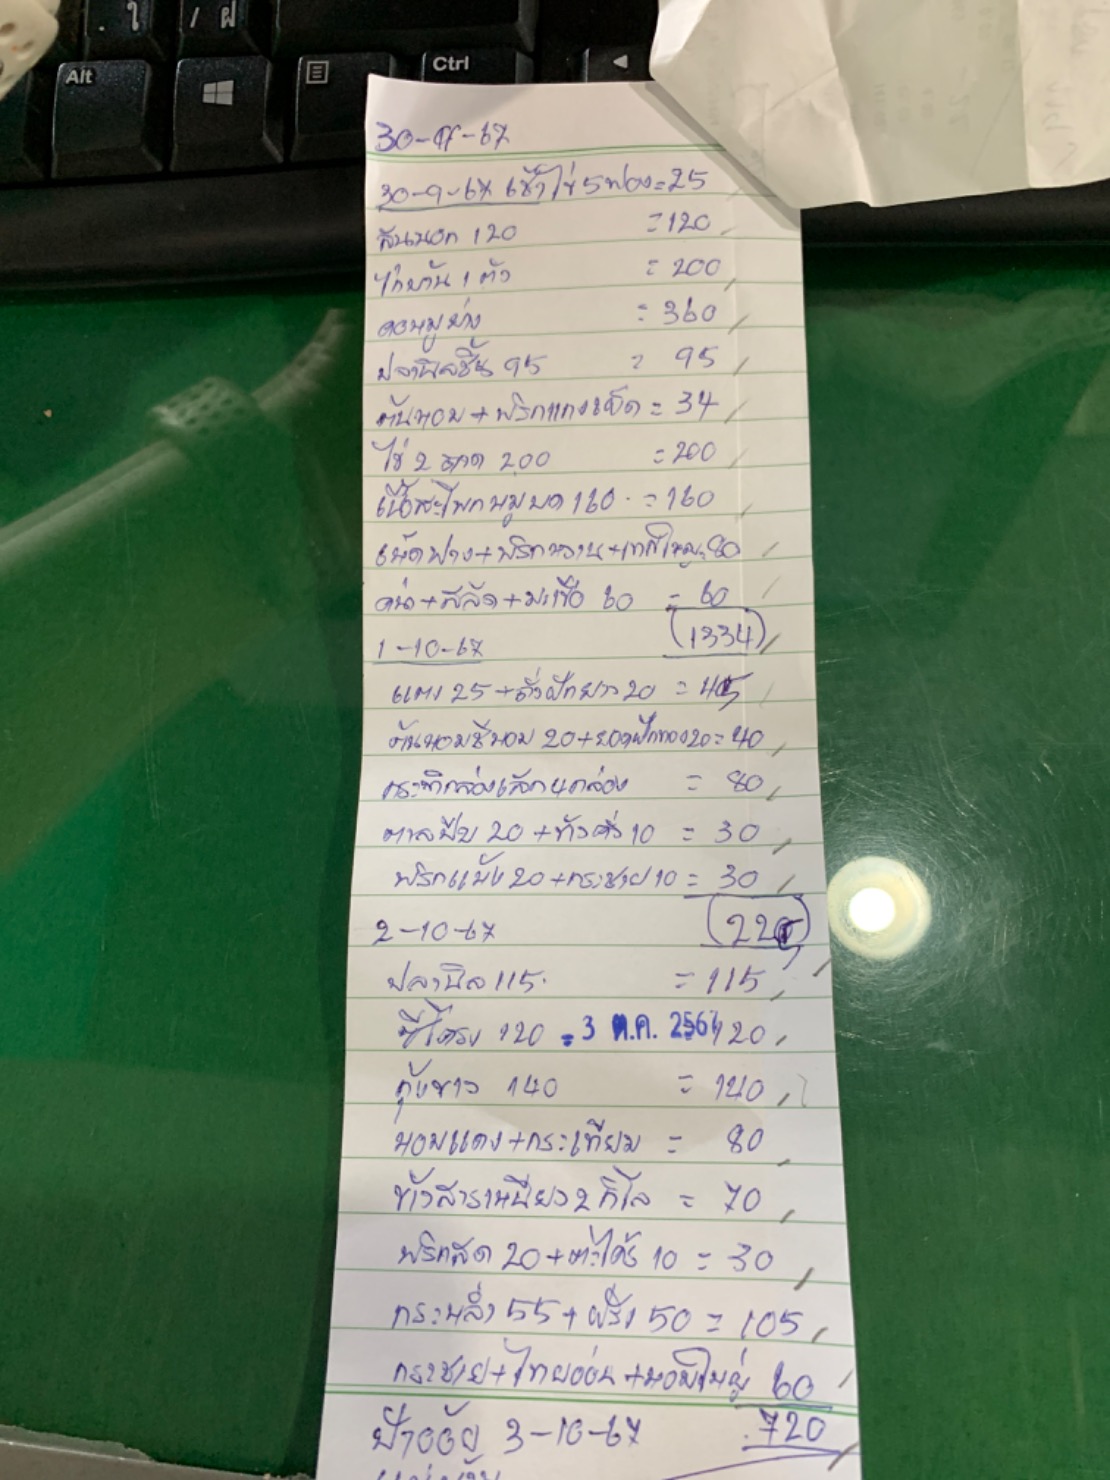 Alt
Ctrl
30-9-67
30-9-67 เช้า ไข่ 5 ฟอง = 25
สันนอก 120 = 120
ไก่บ้าน 1 ตัว = 200
คอหมูย่าง = 360
ปลานิลชิ้น 95 = 95
ต้นหอม + พริกแกงเผ็ด = 34
ไข่ 2 ถาด 200 = 200
เนื้อสะโพกหมูบด 160 = 160
เห็ดฟาง + พริกหวาน + เทศใหญ่ = 80
คน้า + สลัด + มะเขือ 60 = 60
1334
1-10-67
แตง 25 + ถั่วฝักยาว 20 = 45
ต้นหอมชีหอม 20 + ยอดฟักทอง 20 = 40
กระทิกล่องเล็ก 4 กล่อง = 80
ตาลปีบ 20 + ถั่ว 10 = 30
พริกแห้ง 20 + กระชาย 10 = 30
225
2-10-67
ปลานิล 115 = 115
ซี่โครง 120 = 120
3 ต.ค. 2567
กุ้งขาว 140 = 140
หอมแดง + กระเทียม = 80
ข้าวสารเหนียว 2 กิโล = 70
พริกสด 20 + ตะไคร้ 10 = 30
กระหล่ำ 55 + ฝรั่ง 50 = 105
กระชาย + ไทยอ่อน + หอมใหญ่ 60
720
ป้าอ้อย 3-10-67